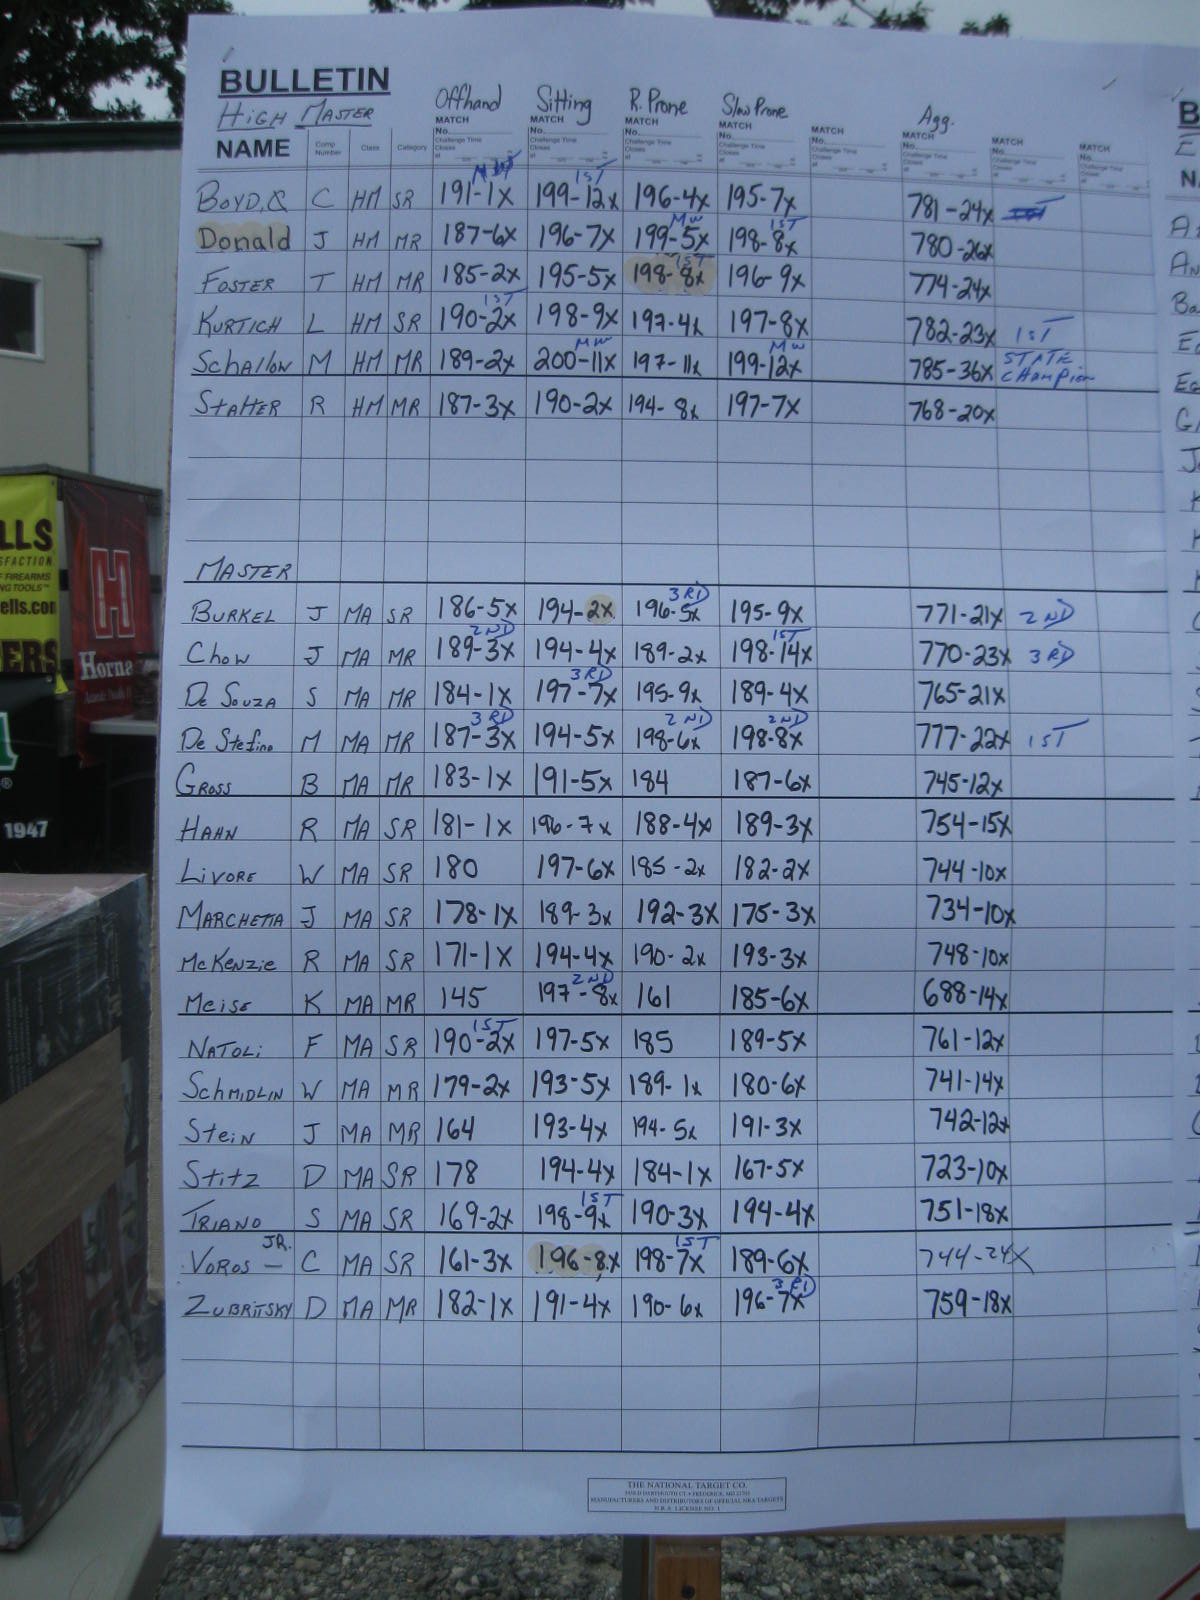 BULLETIN
HIGH MASTER
Offhand Sitting R. Prone Slow Prone Agg.
NAME Comp Number Class Category MATCH No. Challenge Time Closes at MATCH No. Challenge Time Closes at MATCH No. Challenge Time Closes at MATCH No. Challenge Time Closes at MATCH No. Challenge Time Closes at MATCH No. Challenge Time Closes at MATCH No. MATCH No.
BOYD, C HM SR 191-1x MW 199-12x 1ST 196-4x 195-7x 781-24x
Donald J HM MR 187-6x 196-7x 199-5x MW 198-8x 1ST 780-26x
FOSTER T HM MR 185-2x 195-5x 198-8x 1ST 196-9x 774-24x
KURTICH L HM SR 190-2x 1ST 198-9x 197-4x 197-8x 782-23x 1ST
Schallow M HM MR 189-2x 200-11x MW 197-11x 199-12x MW 785-36x STATE CHAMPION
STATTER R HM MR 187-3x 190-2x 194-8x 197-7x 768-20x
MASTER
BURKEL J MA SR 186-5x 194-2x 196-5x 3RD 195-9x 771-21x 2ND
CHOW J MA MR 189-3x 2ND 194-4x 189-2x 198-14x 1ST 770-23x 3RD
De Souza S MA MR 184-1x 197-7x 3RD 195-9x 189-4x 765-21x
De Stefino M MA MR 187-3x 3RD 194-5x 198-6x 2ND 198-8x 2ND 777-22x 1ST
GROSS B MA MR 183-1x 191-5x 184 187-6x 745-12x
HAHN R MA SR 181-1x 196-7x 188-4x 189-3x 754-15x
LIVORE W MA SR 180 197-6x 185-2x 182-2x 744-10x
MARCHETTA J MA SR 178-1x 189-3x 192-3x 175-3x 734-10x
McKenzie R MA SR 171-1x 194-4x 190-2x 193-3x 748-10x
Meise K MA MR 145 197-8x 2ND 161 185-6x 688-14x
NATOLi F MA SR 190-2x 1ST 197-5x 185 189-5x 761-12x
SCHMIDLIN W MA MR 179-2x 193-5x 189-1x 180-6x 741-14x
Stein J MA MR 164 193-4x 194-5x 191-3x 742-12x
Stitz D MA SR 178 194-4x 184-1x 167-5x 723-10x
TRIANO S MA SR 169-2x 198-9x 1ST 190-3x 194-4x 751-18x
VOROS - JR. C MA SR 161-3x 196-8x 198-7x 1ST 189-6x 744-24x
ZUBRITSKY D MA MR 182-1x 191-4x 190-6x 196-7x 3RD 759-18x
THE NATIONAL TARGET CO.
MANUFACTURERS AND DISTRIBUTORS OF OFFICIAL NRA TARGETS
N.R.A. LICENSE NO. 1
LLS
SFACTION
FIREARMS
NG TOOLS™
ells.com
ERS
H
Horna
1947